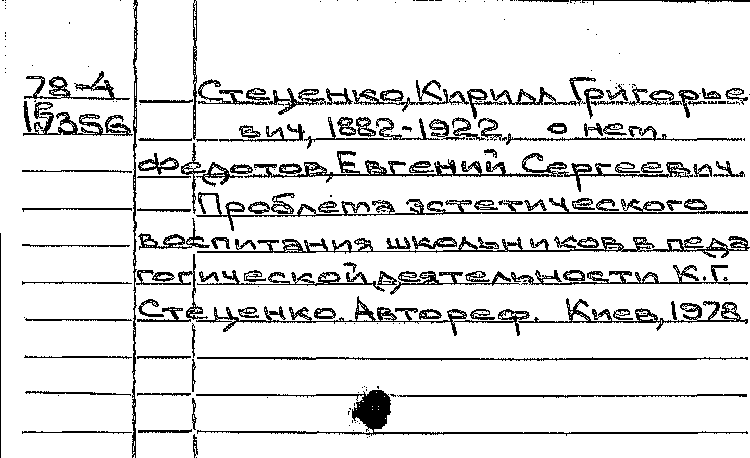 78-4
15356
Стеценко, Кирилл Григорье
вич, 1882-1922, о нем.
Федотов, Евгений Сергеевич.
Проблема эстетического
воспитания школьников в педа
гогической деятельности К.Г.
Стеценко. Автореф. Киев, 1978.